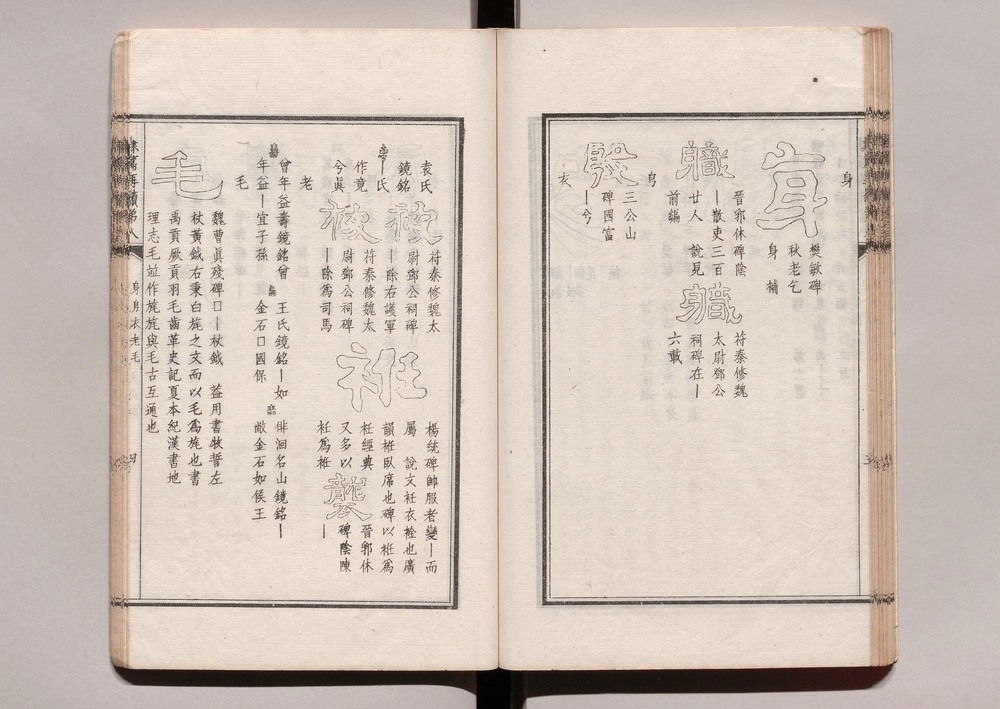 身
身
樊敏碑
秋老乞
身 補
職
晉郛休碑陰
|散吏三百
廿人 說見
前編
職
苻秦修魏
太尉鄧公
祠碑在|
六載
㐆
殷
三公山
碑國富
|兮
衣
袁氏
鏡銘
|氏
作竟
兮眞
苻秦修魏太
尉鄧公祠碑
|除右護軍
苻秦修魏太
尉鄧公祠碑
|除爲司馬
袵
楊統碑帥服者變|而
屬 說文衽衣䘳也廣
韻袵臥席也碑以袵爲
衽經典
又多以
衽爲袵
襲
晉郛休
碑陰陳
|
老
曾年益壽鏡銘曾
年益|宜子孫
王氏鏡銘|如
金石囗國保
俳洄名山鏡銘|
敝金石如侯王
毛
毛
魏曹眞殘碑囗|杖鉞 葢用書牧誓左
杖黃鉞右秉白旄之文而以毛爲旄也書
禹貢厥貢羽毛齒革史記夏本紀漢書地
理志毛竝作旄旄與毛古互通也
隸篇再續第八 身㐆衣老毛 四